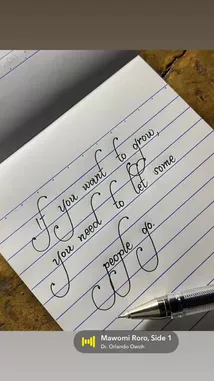 if you want to grow,
you need to let some
people go.
Mawomi Roro, Side 1
Dr. Orlando Owoh